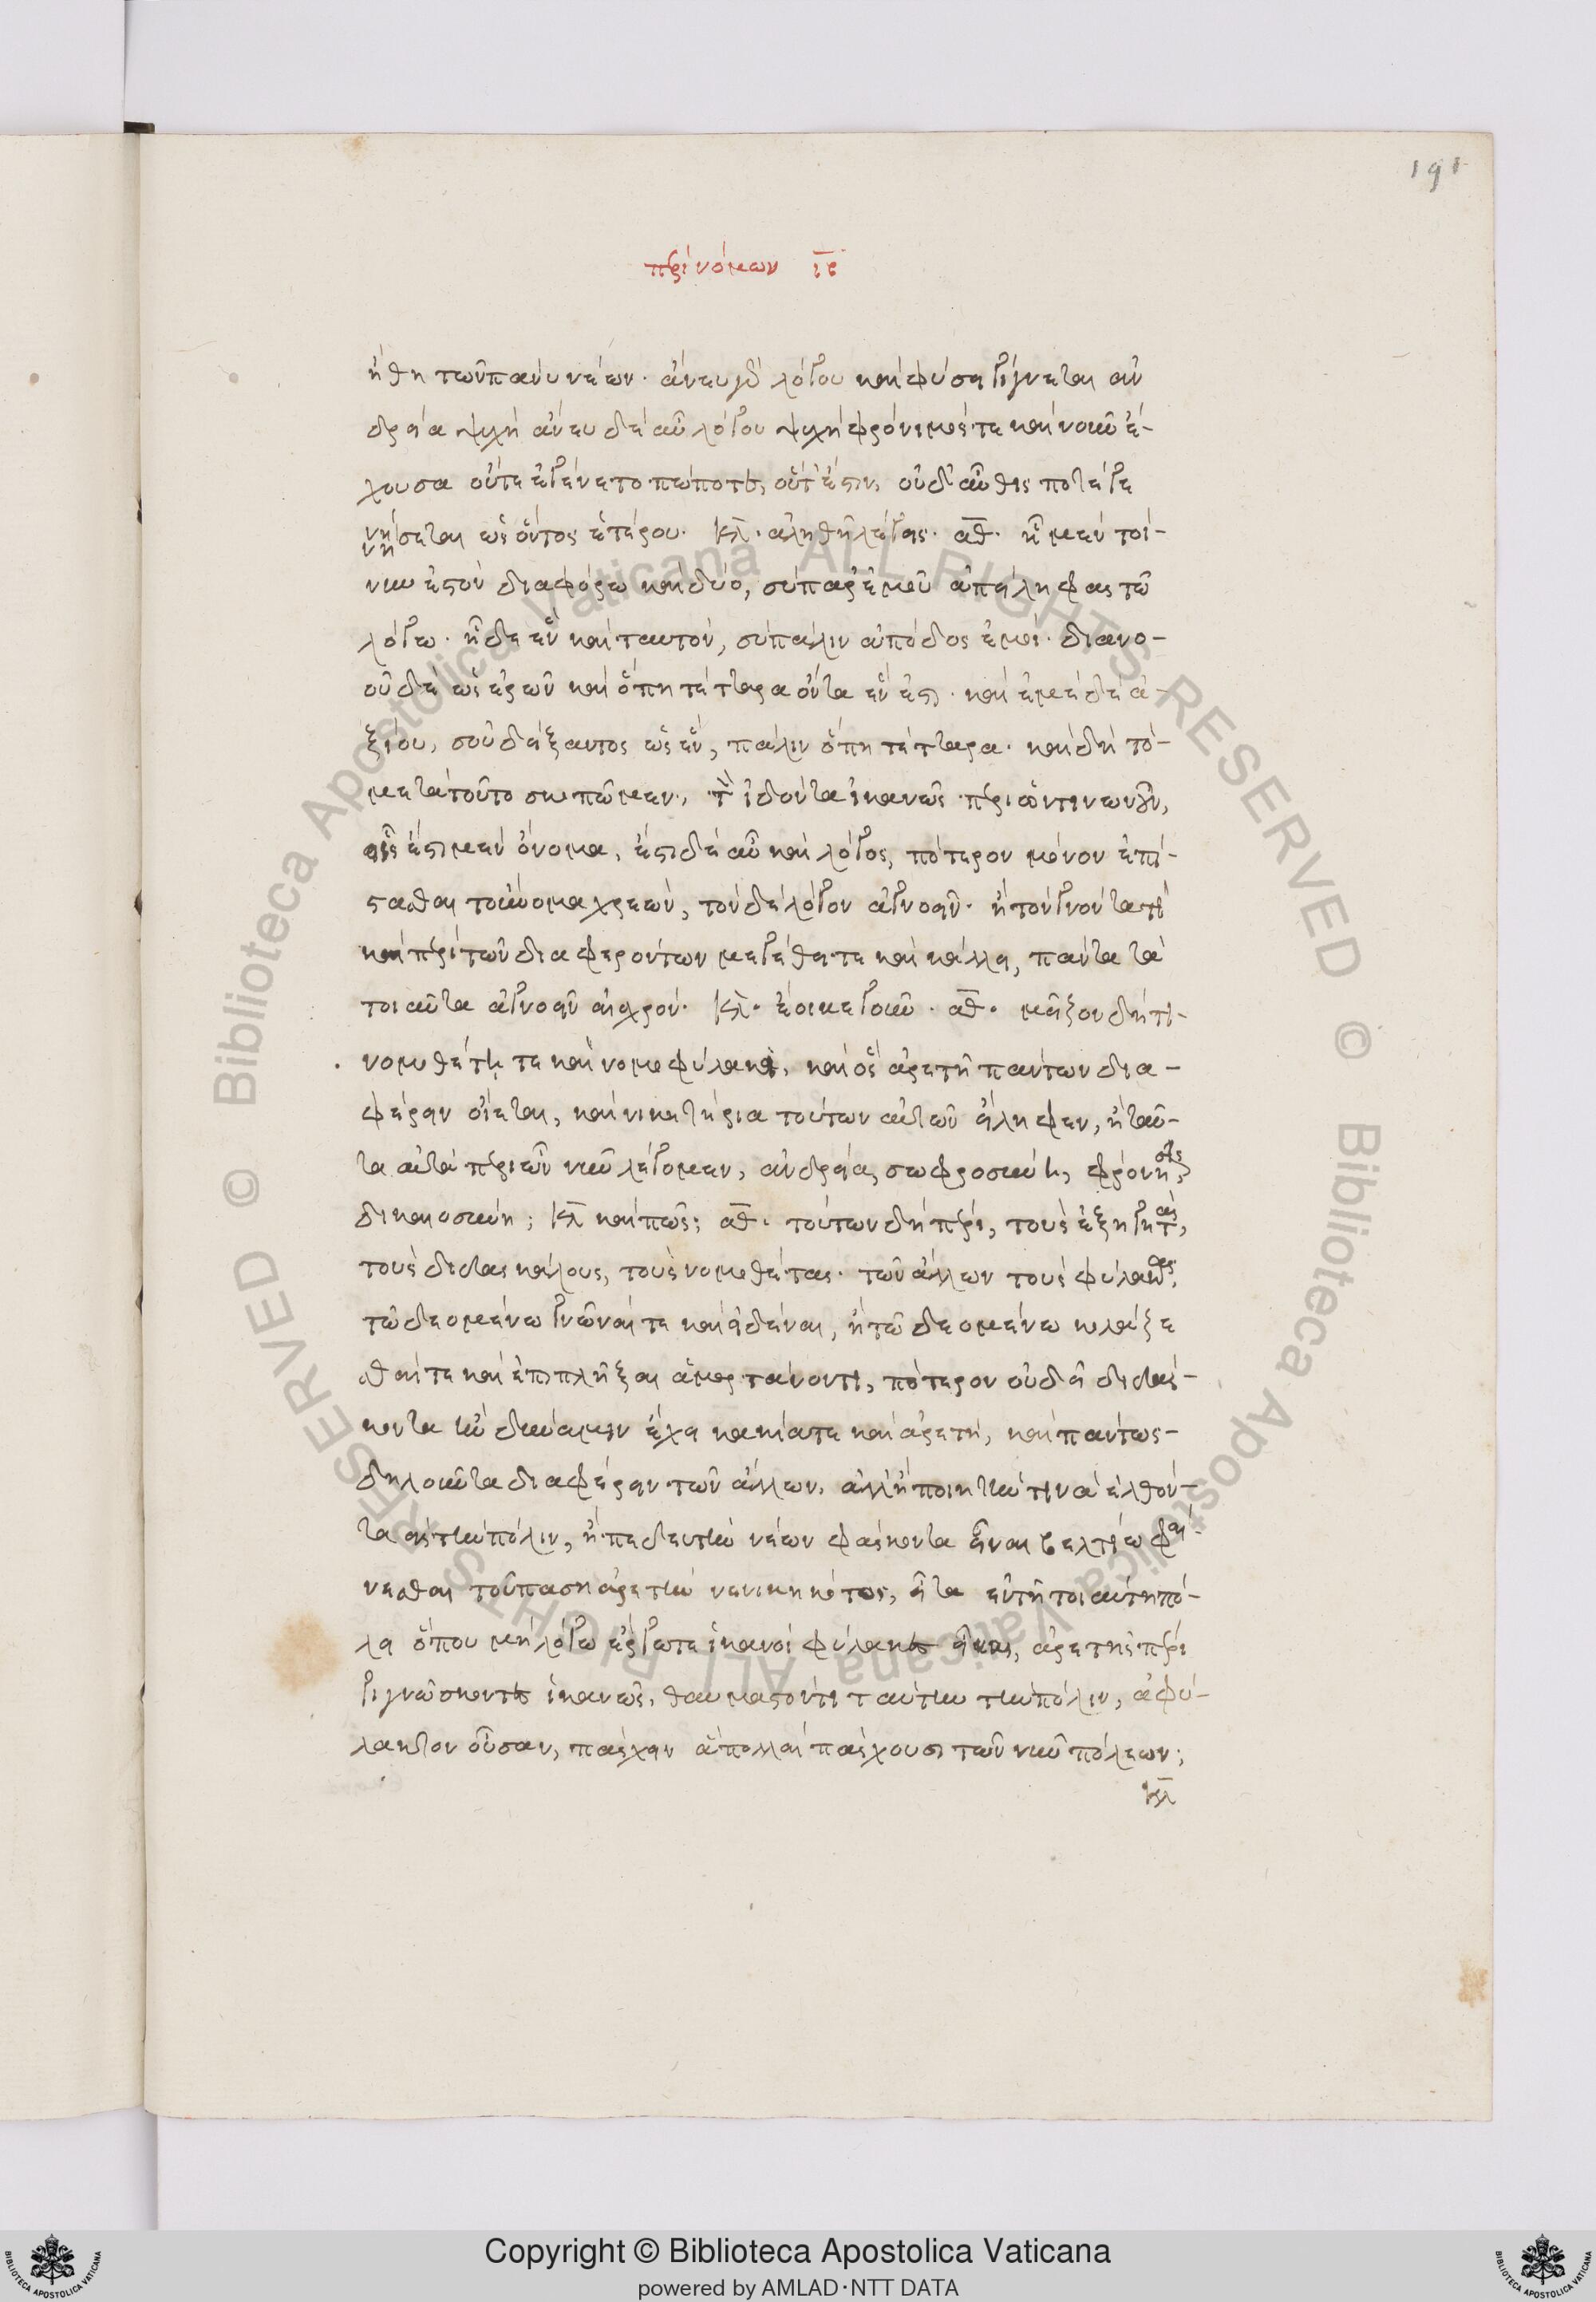 191
περὶ νόμων ιβ
ήθη τῶν πάνυ νέων. ἄνευ γὰρ λόγου καὶ φύσει γίγνεται ἀν
δρεία ψυχὴ ἄνευ δὲ αὖ λόγου ψυχὴ φρόνιμός τε καὶ νοῦν ἔ-
χουσα οὔτε ἐγένετο πώποτε, οὔτ' ἔστιν, οὐδ' αὖθις ποτὲ γε
νήσεται ὡς ὄντος ἑτέρου. κλ. ἀληθῆ λέγεις. αθ. ᾗ μὲν τοί-
νυν ἐστὸν διαφόρω καὶ δύο, σὺ παρ' ἐμοῦ ἀπείληφας τῶ
λόγω. ᾗ δὲ ἓν καὶ ταυτόν, σὺ πάλιν ἀπόδος ἐμοί. διανο-
οῦ δὲ ὡς ἐρῶν καὶ ὅπη τέτταρα ὄντα ἕν ἐστι. καὶ ἐμὲ δὲ ἀ-
ξίου, σοῦ δείξαντος ὡς ἕν, πάλιν ὅπη τέτταρα. καὶ δὴ τὸ-
μετὰ τοῦτο σκοπῶμεν, τὸν εἰδότα ἱκανῶς περὶ ὧντινωνοῦν,
οἷς ἔστι μὲν ὄνομα, ἔστι δὲ αὖ καὶ λόγος, πότερον μόνον ἐπί-
στασθαι τοὔνομα χρεών, τὸν δὲ λόγον ἀγνοεῖν. ἢ τόν γε ὄντα τι
καὶ περὶ τῶν διαφερόντων μεγέθει τε καὶ κάλλει, πάντα τὰ
τοιαῦτα ἀγνοεῖν αἰσχρόν. κλ. ἔοικε γοῦν. αθ. μεῖζον δή τι-
νομοθέτη τε καὶ νομοφύλακι, καὶ ὃς ἀρετῇ πάντων δια-
φέρειν οἴεται, καὶ νικητήρια τούτων αὐτῶν εἴληφεν, ἢ ταῦ-
τα αὐτὰ περὶ ὧν νῦν λέγομεν, ἀνδρεία, σωφροσύνη, φρόνησις,
δικαιοσύνη; κλ καὶ πῶς; αθ. τούτων δὴ πέρι, τοὺς ἐξηγητὰς,
τοὺς διδασκάλους, τοὺς νομοθέτας. τῶν ἄλλων τοὺς φύλακας,
τῶ δεομένω γνῶναί τε καὶ εἰδέναι, ἢ τῶ δεομένω κολάζε
σθαί τε καὶ ἐπιπλῆξαι ἁμαρτάνοντι, πότερον οὐ δεῖ διδάσ-
κοντα ἣν δύναμιν ἔχει κακία τε καὶ ἀρετή, καὶ πάντως-
δηλοῦντα διαφέρειν τῶν ἄλλων, ἀλλ' ἢ ποιητήν τινα ἐλθόν-
τα εἰς τὴν πόλιν, ἢ παιδευτὴν νέων φάσκοντα εἶναι βελτίω φαί-
νεσθαι τοῦ πᾶσαν ἀρετὴν νενικηκότος, εἶτα ἐν τῇ τοιαύτη πό-
λει ὅπου μὴ λόγω ἔργω τε ἱκανοὶ φύλακες εἶεν, ἀρετῆς πέρι
γιγνώσκοντες ἱκανῶς, θαυμαστόν τι ταύτην τὴν πόλιν, ἀφύ-
λακτον οὖσαν, πάσχειν ἃ πολλαὶ πάσχουσι τῶν νῦν πόλεων;
κλ
Copyright © Biblioteca Apostolica Vaticana
powered by AMLAD·NTT DATA